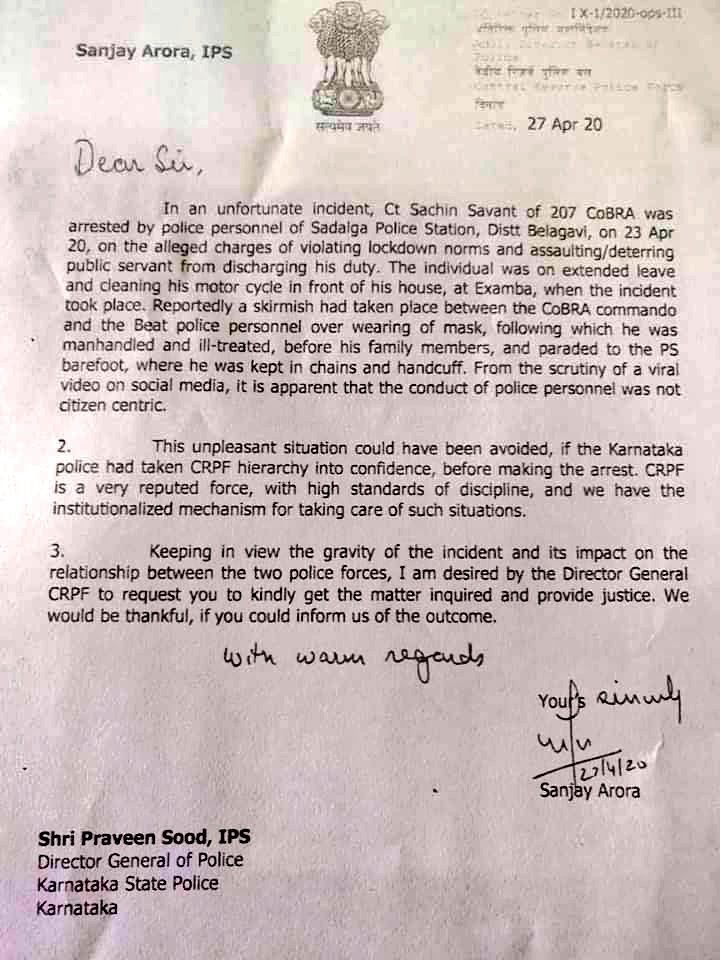 IX-1/2020-ops-III
Sanjay Arora, IPS
पुलिस
केंद्रीय रिजर्व पुलिस बल
Central Reserve Police Force
दिनांक
सत्यमेव जयते
Dated, 27 Apr 20
Dear Sir,
In an unfortunate incident, Ct Sachin Savant of 207 CoBRA was
arrested by police personnel of Sadalga Police Station, Distt Belagavi, on 23 Apr
20, on the alleged charges of violating lockdown norms and assaulting/deterring
public servant from discharging his duty. The individual was on extended leave
and cleaning his motor cycle in front of his house, at Examba, when the incident
took place. Reportedly a skirmish had taken place between the CoBRA commando
and the Beat police personnel over wearing of mask, following which he was
manhandled and ill-treated, before his family members, and paraded to the PS
barefoot, where he was kept in chains and handcuff. From the scrutiny of a viral
video on social media, it is apparent that the conduct of police personnel was not
citizen centric.
2. This unpleasant situation could have been avoided, if the Karnataka
police had taken CRPF hierarchy into confidence, before making the arrest. CRPF
is a very reputed force, with high standards of discipline, and we have the
institutionalized mechanism for taking care of such situations.
3. Keeping in view the gravity of the incident and its impact on the
relationship between the two police forces, I am desired by the Director General
CRPF to request you to kindly get the matter inquired and provide justice. We
would be thankful, if you could inform us of the outcome.
with warm regards
Your's sincerely
27/4/20
Sanjay Arora
Shri Praveen Sood, IPS
Director General of Police
Karnataka State Police
Karnataka